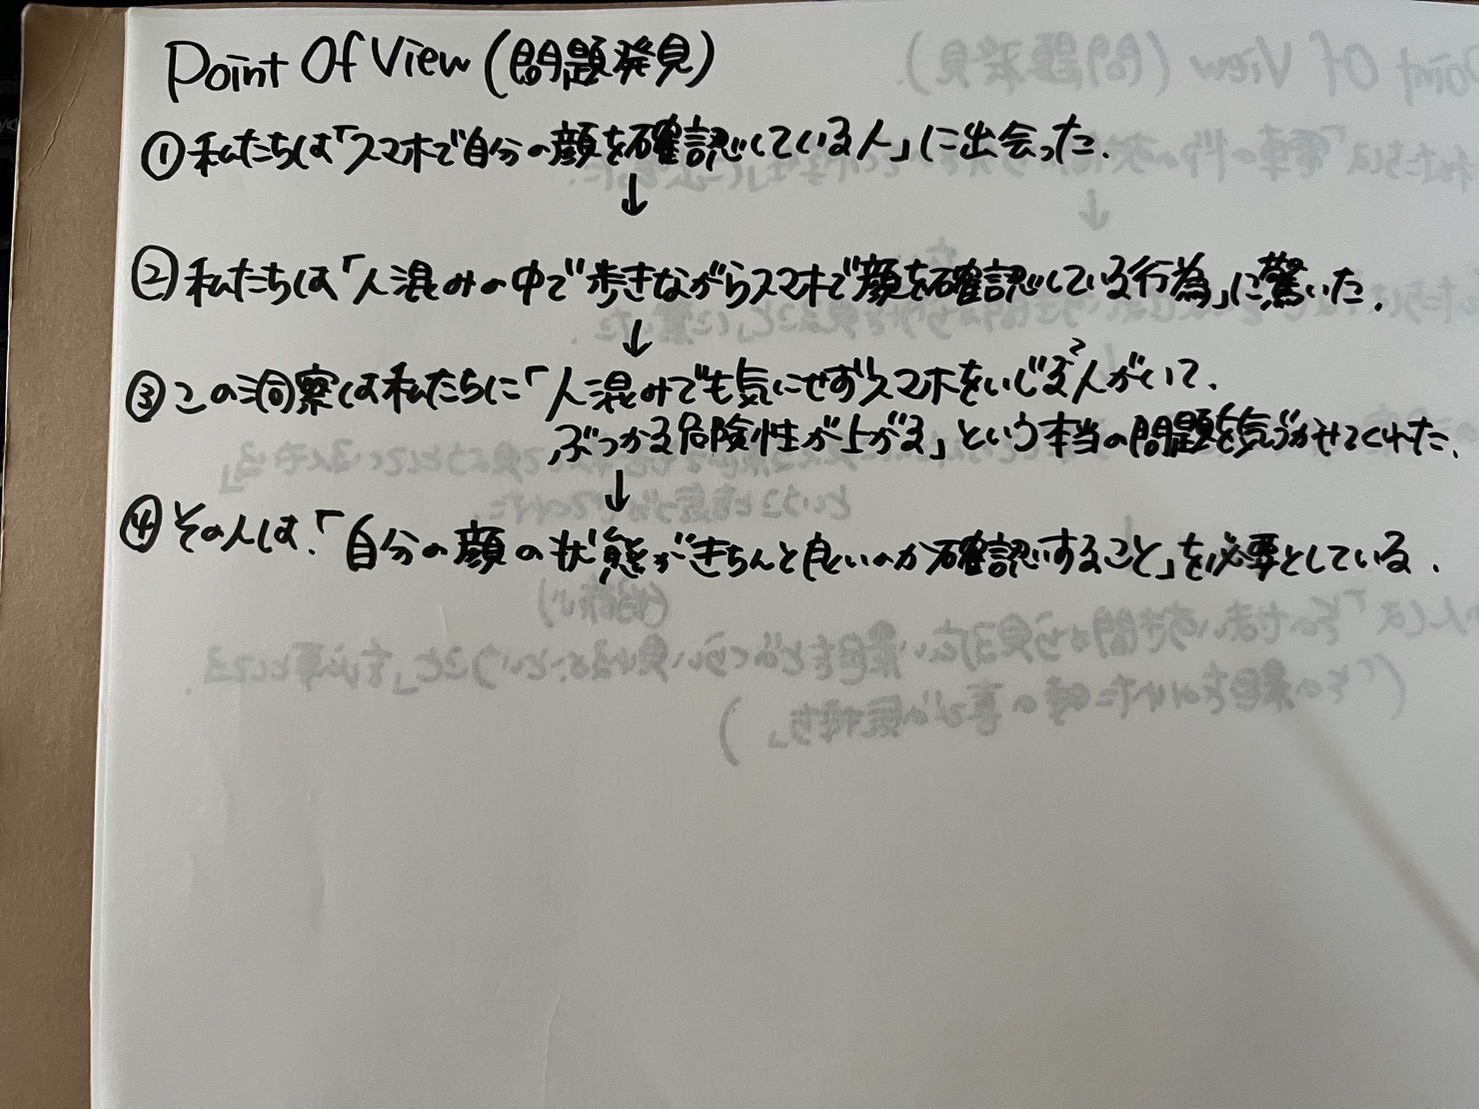 Point Of View (問題発見)
① 私たちは「スマホで自分の顔を確認している人」に出会った.
↓
② 私たちは「人混みの中で歩きながらスマホで顔を確認している行為」に驚いた.
↓
③ この洞察は私たちに「人混みでも気にせずスマホをいじる人がいて.
ぶつかる危険性が上がる」という本当の問題を気づかせてくれた.
↓
④ その人は.「自分の顔の状態がきちんと良いのか確認すること」を必要としている.